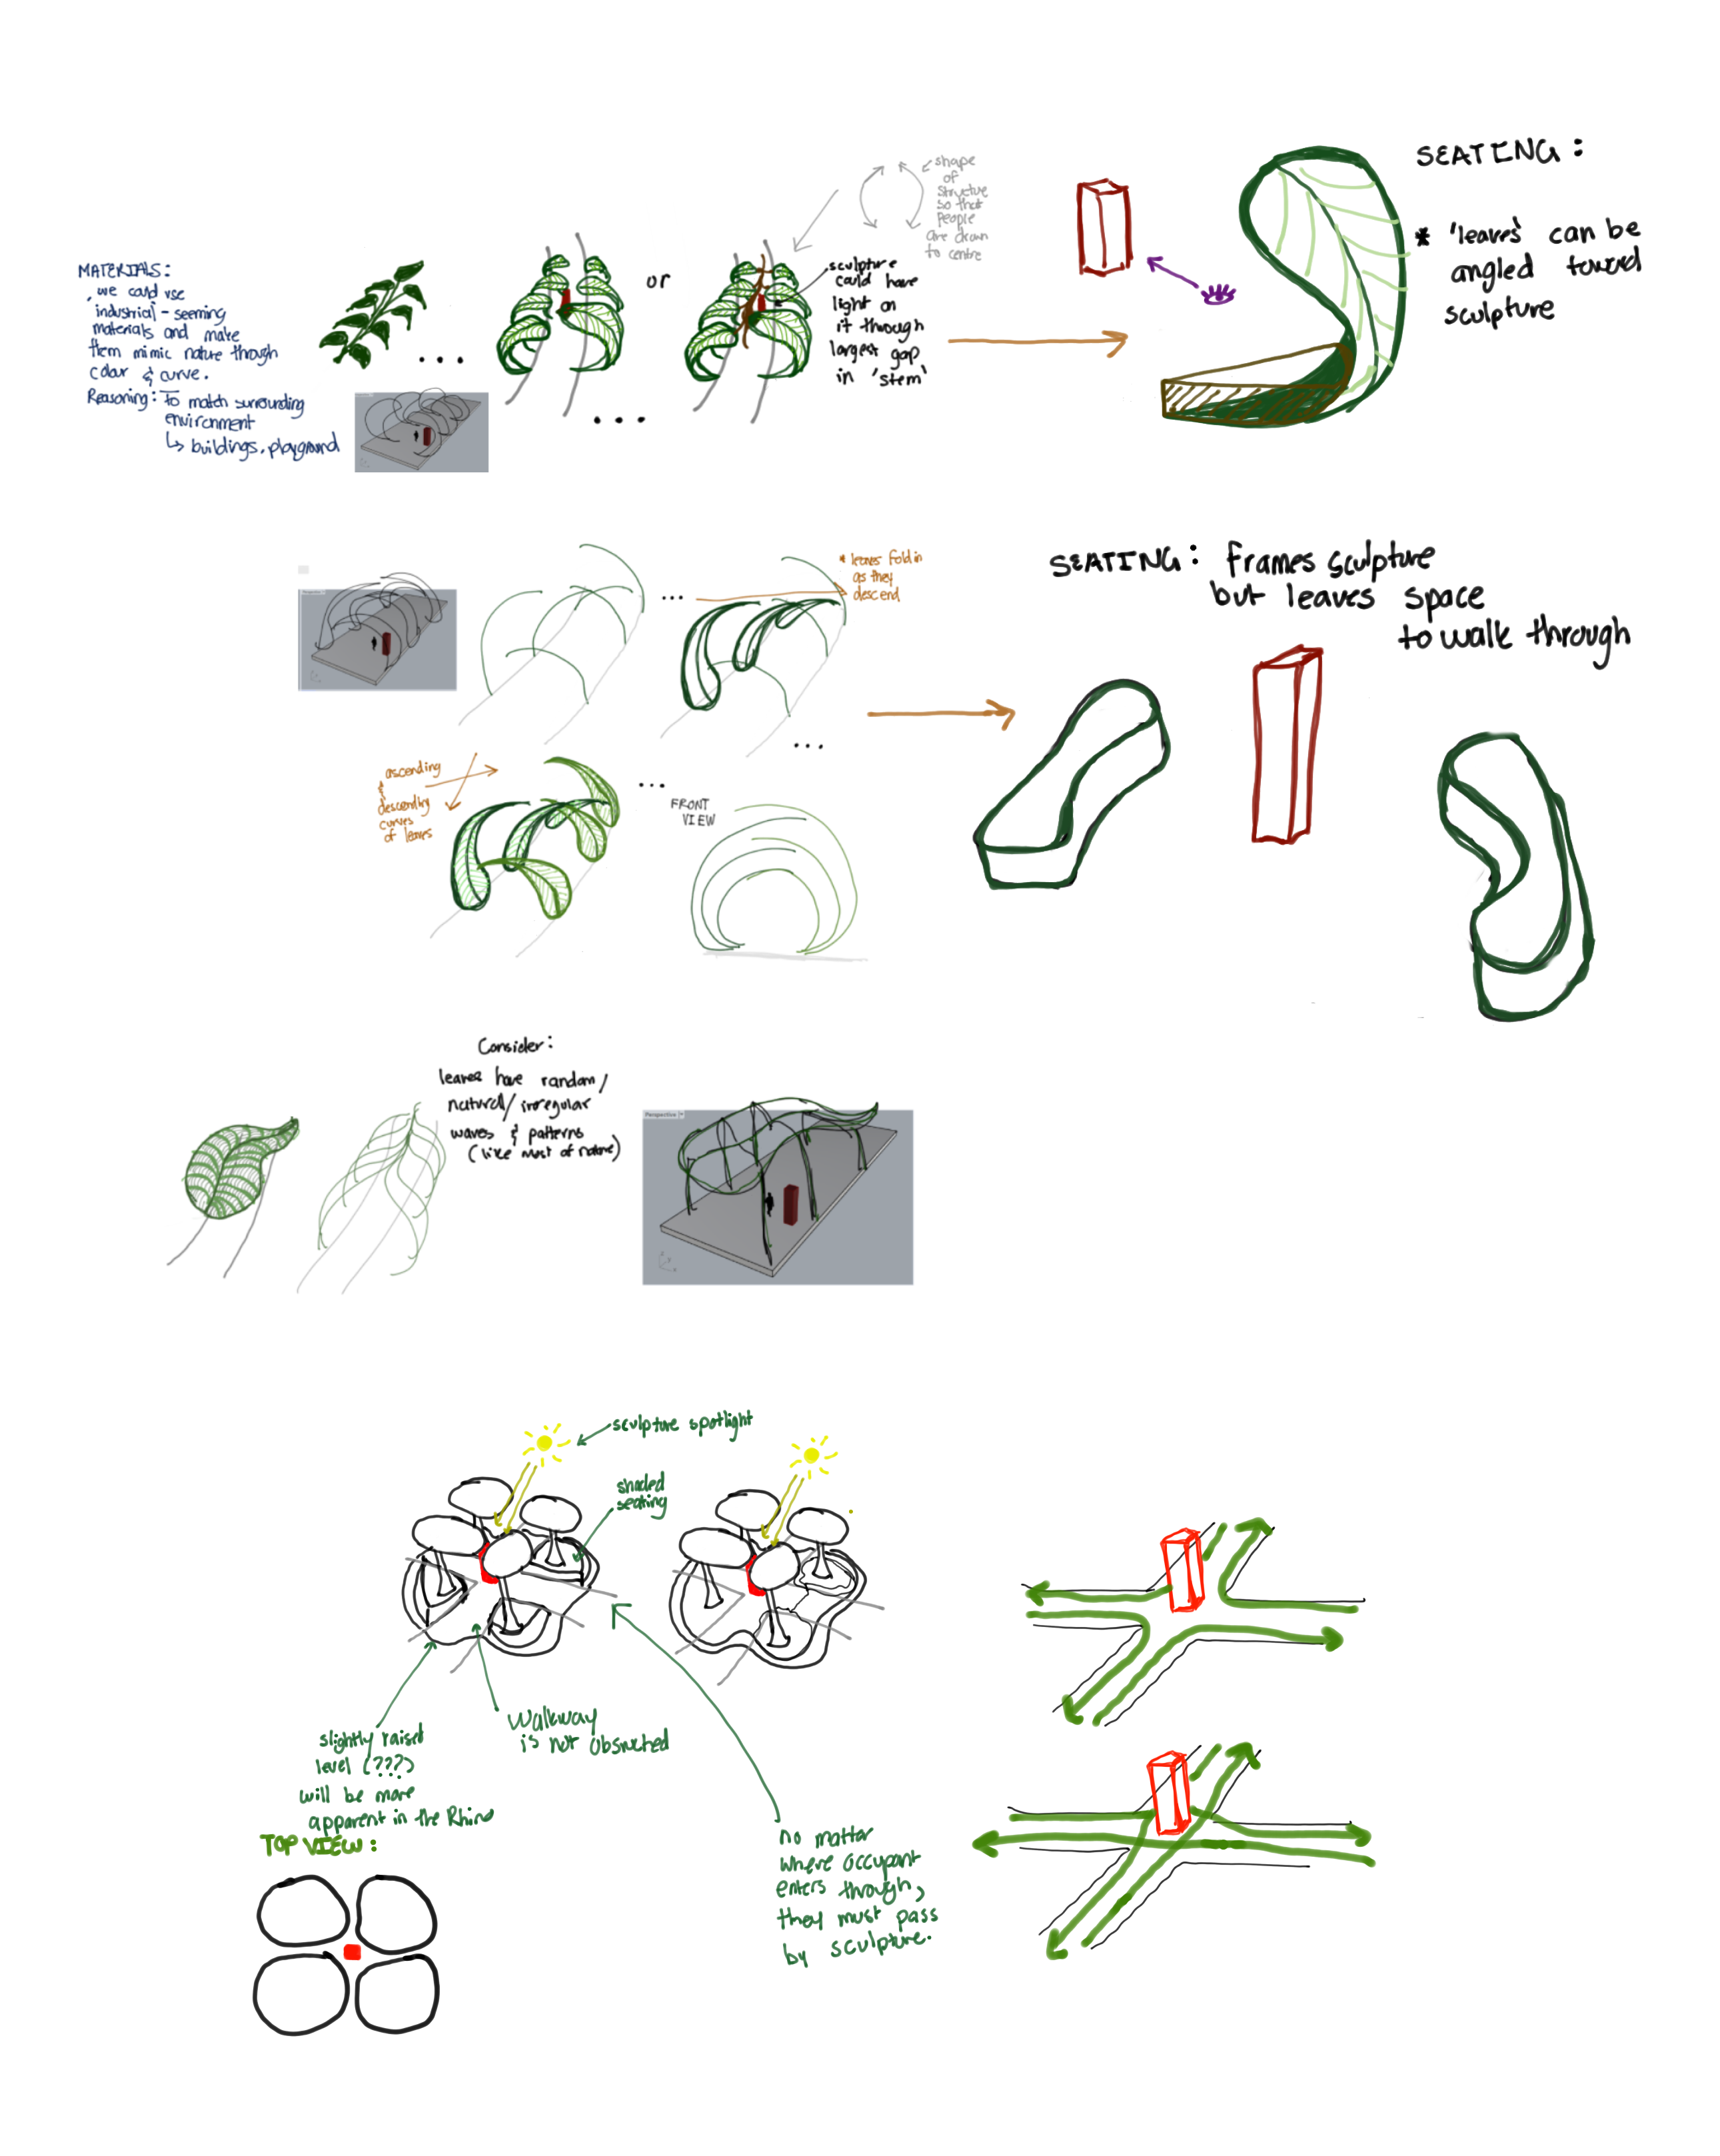 MATERIALS:
we could use
industrial-seeming
materials and make
them mimic nature through
color & curve.
Reasoning: To match surrounding
environment
↳ buildings, playground
...
...
or
shape
of
structure
so that
people
are drawn
to centre
sculpture
could have
light on
it through
largest gap
in 'stem'
SEATING:
* 'leaves' can be
angled toward
sculpture
...
* leaves fold in
as they
descend
...
SEATING: frames sculpture
but leaves space
to walk through
ascending
&
descending
curves
of leaves
...
FRONT
VIEW
Consider:
leaves have random/
natural/irregular
waves & patterns
(like most of nature)
Perspective
sculpture spotlight
shaded
seating
slightly raised
level (???)
will be more
apparent in the Rhino
Walkway
is not obsructed
TOP VIEW:
no matter
where occupant
enters through,
they must pass
by sculpture.